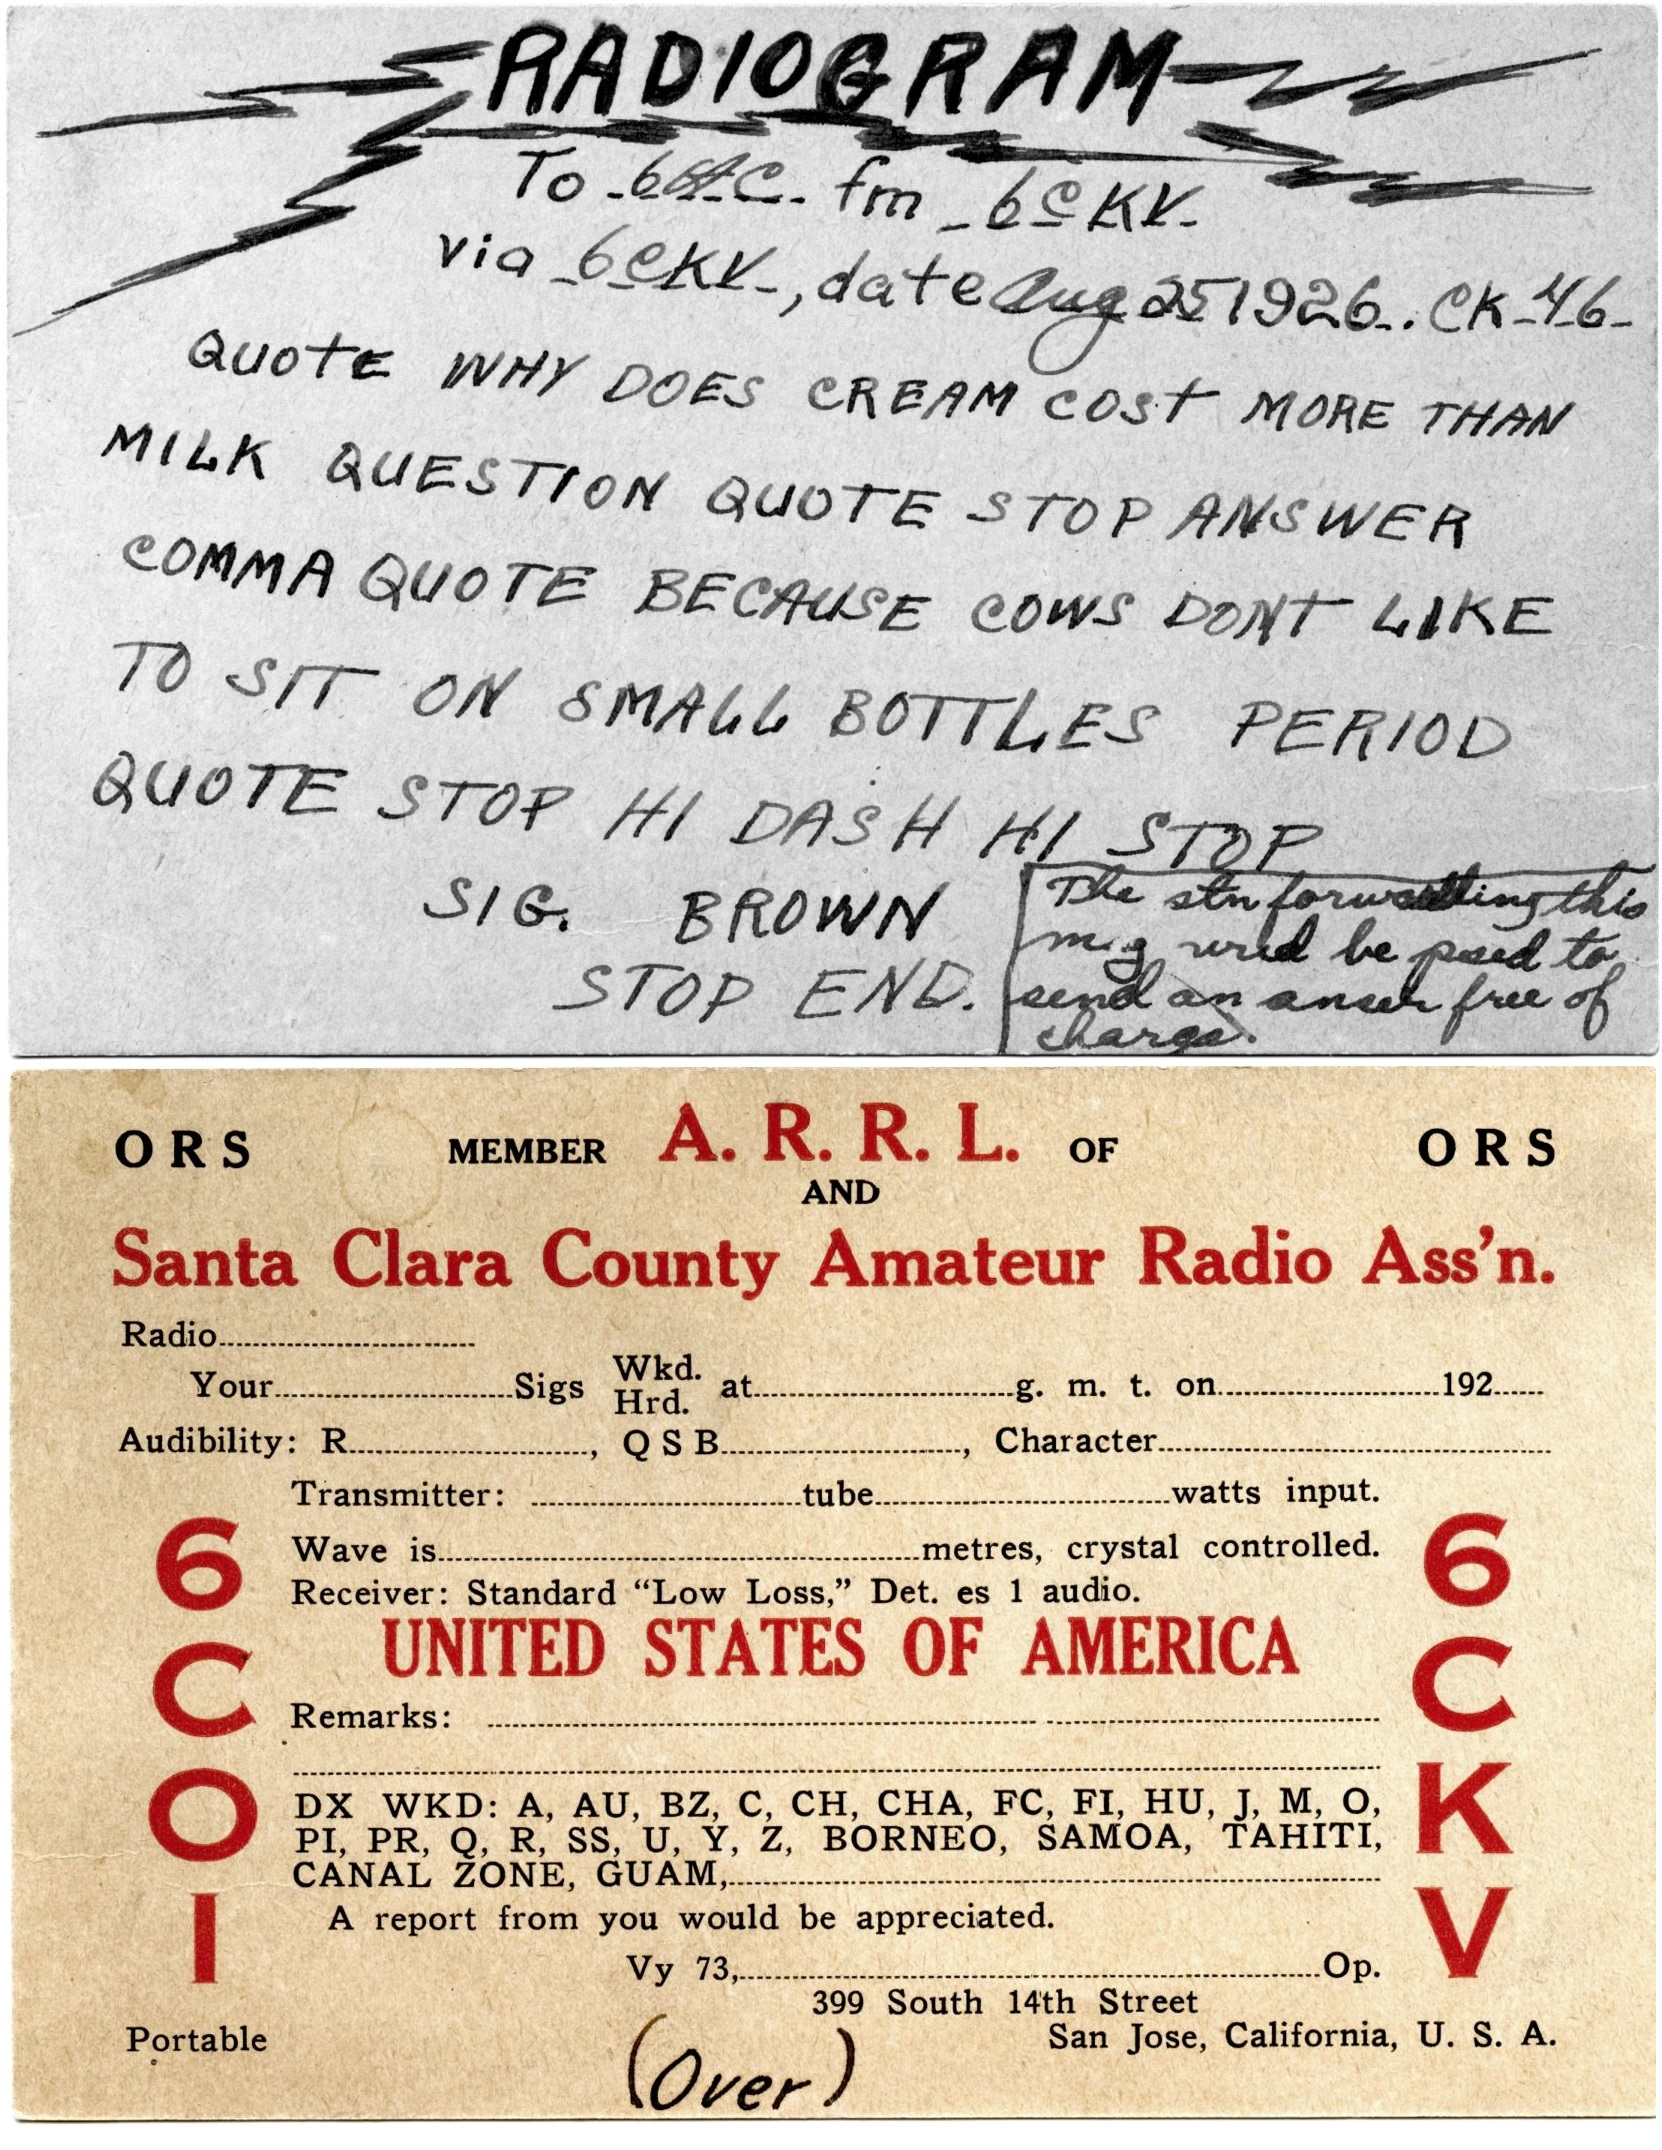 RADIOGRAM
To 6HC fm 6CKV
via 6CKV, date Aug 25 1926. CK 46
QUOTE WHY DOES CREAM COST MORE THAN
MILK QUESTION QUOTE STOP ANSWER
COMMA QUOTE BECAUSE COWS DONT LIKE
TO SIT ON SMALL BOTTLES PERIOD
QUOTE STOP HI DASH HI STOP
SIG. BROWN
STOP END.
The stn forwarding this
msg wud be psed to
send an anser free of
charge.
ORS MEMBER A. R. R. L. OF ORS
AND
Santa Clara County Amateur Radio Ass'n.
Radio
Your Sigs Wkd. Hrd. at g. m. t. on 192
Audibility: R , Q S B , Character
Transmitter: tube watts input.
Wave is metres, crystal controlled.
Receiver: Standard “Low Loss,” Det. es 1 audio.
UNITED STATES OF AMERICA
Remarks:
DX WKD: A, AU, BZ, C, CH, CHA, FC, FI, HU, J, M, O,
PI, PR, Q, R, SS, U, Y, Z, BORNEO, SAMOA, TAHITI,
CANAL ZONE, GUAM,
A report from you would be appreciated.
Vy 73, Op.
399 South 14th Street
San Jose, California, U. S. A.
6COI
Portable
6CKV
(Over)